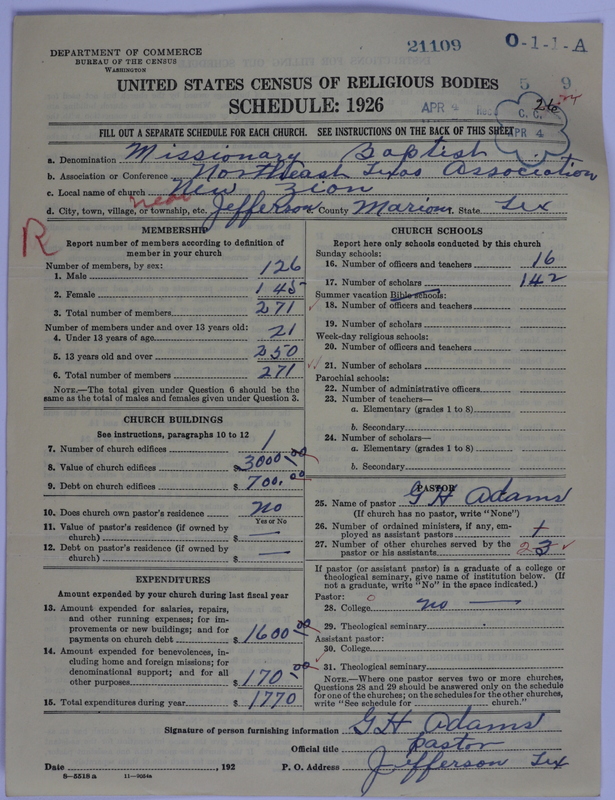 DEPARTMENT OF COMMERCE
BUREAU OF THE CENSUS
WASHINGTON
21109 O-1-1-A
UNITED STATES CENSUS OF RELIGIOUS BODIES
5 9
SCHEDULE: 1926
APR 4 C. C.
FILL OUT A SEPARATE SCHEDULE FOR EACH CHURCH. SEE INSTRUCTIONS ON THE BACK OF THIS SHEET
APR 4
a. Denomination Missionary Baptist
b. Association or Conference Northeast Texas Association
c. Local name of church New Zion
near
d. City, town, village, or township, etc. Jefferson County Marion State Tex
R
MEMBERSHIP
Report number of members according to definition of
member in your church
Number of members, by sex:
1. Male 126
2. Female 145
3. Total number of members 271
Number of members under and over 13 years old:
4. Under 13 years of age 21
5. 13 years old and over 250
6. Total number of members 271
NOTE.—The total given under Question 6 should be
the same as the total of males and females given under Question 3.
CHURCH BUILDINGS
See instructions, paragraphs 10 to 12
7. Number of church edifices 1
8. Value of church edifices $3000.00
9. Debt on church edifices $700.00
10. Does church own pastor's residence no
Yes or No
11. Value of pastor's residence (if owned by
church) $ —
12. Debt on pastor's residence (if owned by
church) $ —
EXPENDITURES
Amount expended by your church during last fiscal year
13. Amount expended for salaries, repairs,
and other running expenses; for im-
provements or new buildings; and for
payments on church debt $1600.00
14. Amount expended for benevolences, in-
cluding home and foreign missions; for
denominational support; and for all
other purposes $170.00
15. Total expenditures during year $1770
CHURCH SCHOOLS
Report here only schools conducted by this church
Sunday schools:
16. Number of officers and teachers 16
17. Number of scholars 142
Summer vacation Bible schools:
18. Number of officers and teachers
19. Number of scholars
Week-day religious schools:
20. Number of officers and teachers
21. Number of scholars
Parochial schools:
22. Number of administrative officers
23. Number of teachers—
a. Elementary (grades 1 to 8)
b. Secondary
24. Number of scholars—
a. Elementary (grades 1 to 8)
b. Secondary
PASTOR
25. Name of pastor G H Adams
(If church has no pastor, write "None")
26. Number of ordained ministers, if any, em-
ployed as assistant pastors +
27. Number of other churches served by the
pastor or his assistants 2 3
If pastor (or assistant pastor) is a graduate of a college or
theological seminary, give name of institution below. (If
not a graduate, write "No" in the space indicated.)
Pastor: 0
28. College no —
29. Theological seminary
Assistant pastor:
30. College
31. Theological seminary
NOTE.—Where one pastor serves two or more churches,
Questions 28 and 29 should be answered only on the schedule
for one of the churches; on the schedules for the other churches,
write "See schedule for church."
Signature of person furnishing information G H Adams
Official title pastor
Date , 192 P. O. Address Jefferson Tex
8—5518 a 11—9684a